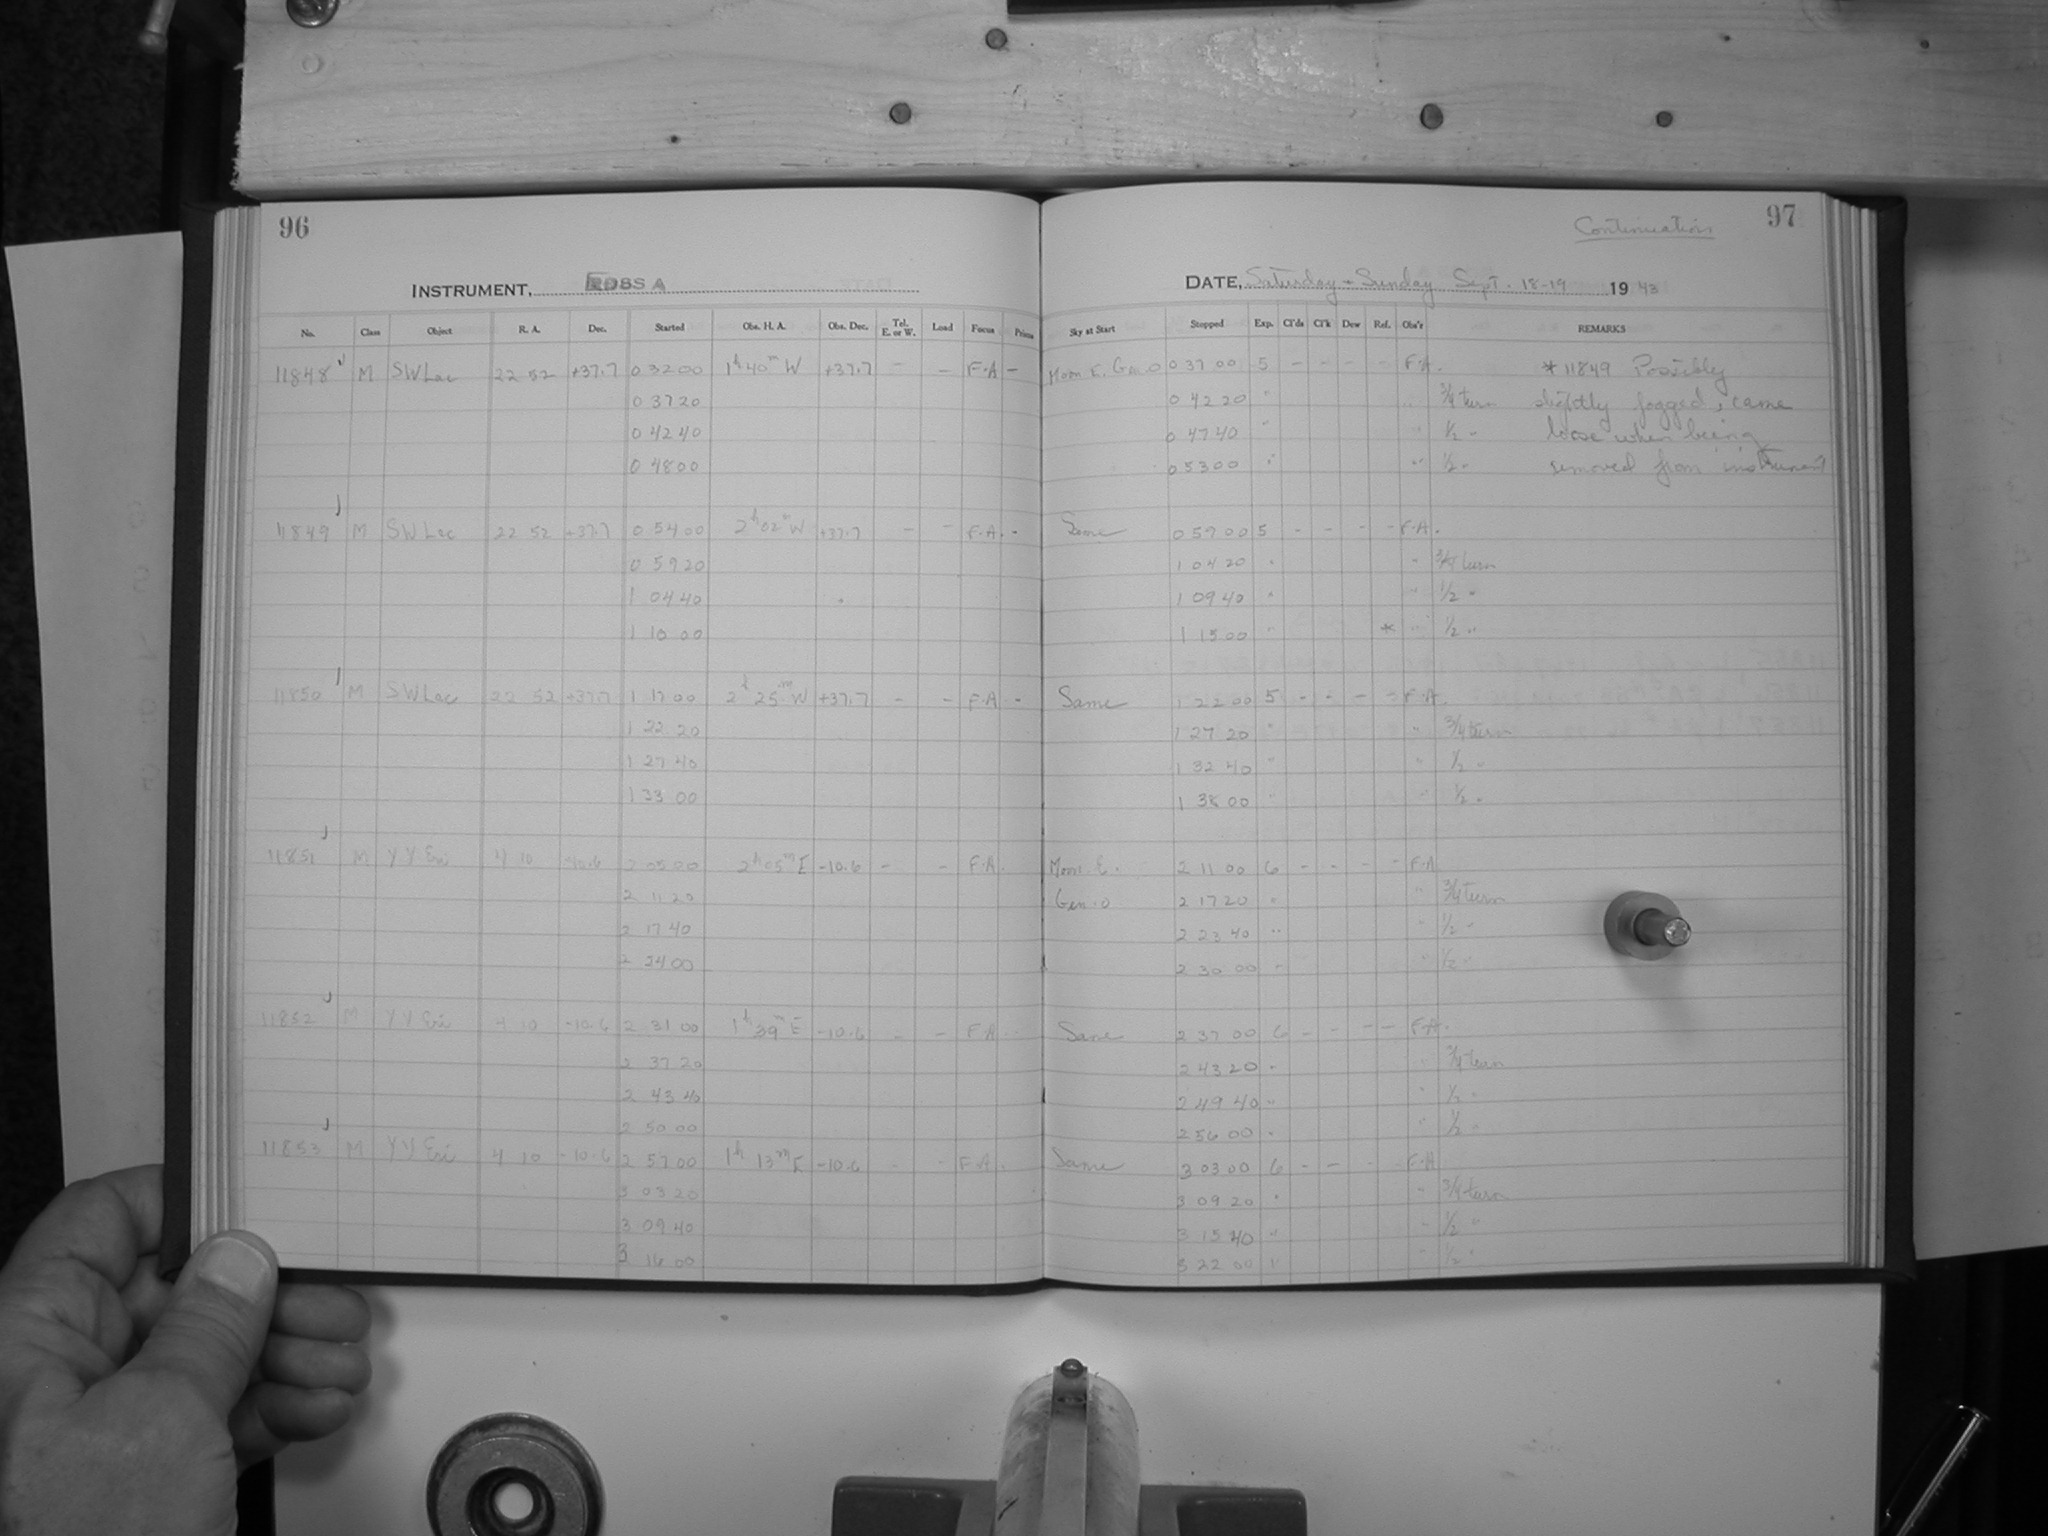 96
INSTRUMENT, RDBS A
No. Class Object R. A. Dec. Started Obs. H. A. Obs. Dec. Tel. E. or W. Load Focus Prisms
11848 M SW Lac 22 52 +37.7 0 32 00 1h 40m W +37.7 - - F.A -
0 37 20
0 42 40
0 48 00
11849 M SW Lac 22 52 +37.7 0 54 00 2h 02m W +37.7 - - F.A. -
0 59 20
1 04 40
1 10 00
11850 M SW Lac 22 52 +37.7 1 17 00 2h 25m W +37.7 - - F.A -
1 22 20
1 27 40
1 33 00
11851 M YY Eri 4 10 -10.6 2 05 00 2h 05m E -10.6 - - F.A.
2 11 20
2 17 40
2 24 00
11852 M YY Eri 4 10 -10.6 2 31 00 1h 39m E -10.6 - - F A
2 37 20
2 43 40
2 50 00
11853 M YY Eri 4 10 -10.6 2 57 00 1h 13m E -10.6 - - F.A.
3 03 20
3 09 40
3 16 00
Continuation 97
DATE, Saturday + Sunday Sept. 18-19 19 43
Sky at Start Stopped Exp. Cl'ds Cl'k Dew Ref. Obs'r REMARKS
Moon E. Gen. 0 0 37 00 5 - - - - F.A. * 11849 Possibly
0 42 20 " " 3/4 turn slightly fogged, came
0 47 40 " " 1/2 " loose when being
0 53 00 " " 1/2 " removed from instrument
Same 0 59 00 5 - - - - F.A.
1 04 20 " " 3/4 turn
1 09 40 " " 1/2 "
1 15 00 " * " 1/2 "
Same 1 22 00 5 - - - - F.A.
1 27 20 " " 3/4 turn
1 32 40 " " 1/2 "
1 38 00 " " 1/2 "
Moon E. 2 11 00 6 - - - - F.A
Gen. 0 2 17 20 " " 3/4 turn
2 23 40 " " 1/2 "
2 30 00 " " 1/2 "
Same 2 37 00 6 - - - - F.A.
2 43 20 " " 3/4 turn
2 49 40 " " 1/2 "
2 56 00 " " 1/2 "
Same 3 03 00 6 - - - - F.A
3 09 20 " " 3/4 turn
3 15 40 " " 1/2 "
3 22 00 " " 1/2 "